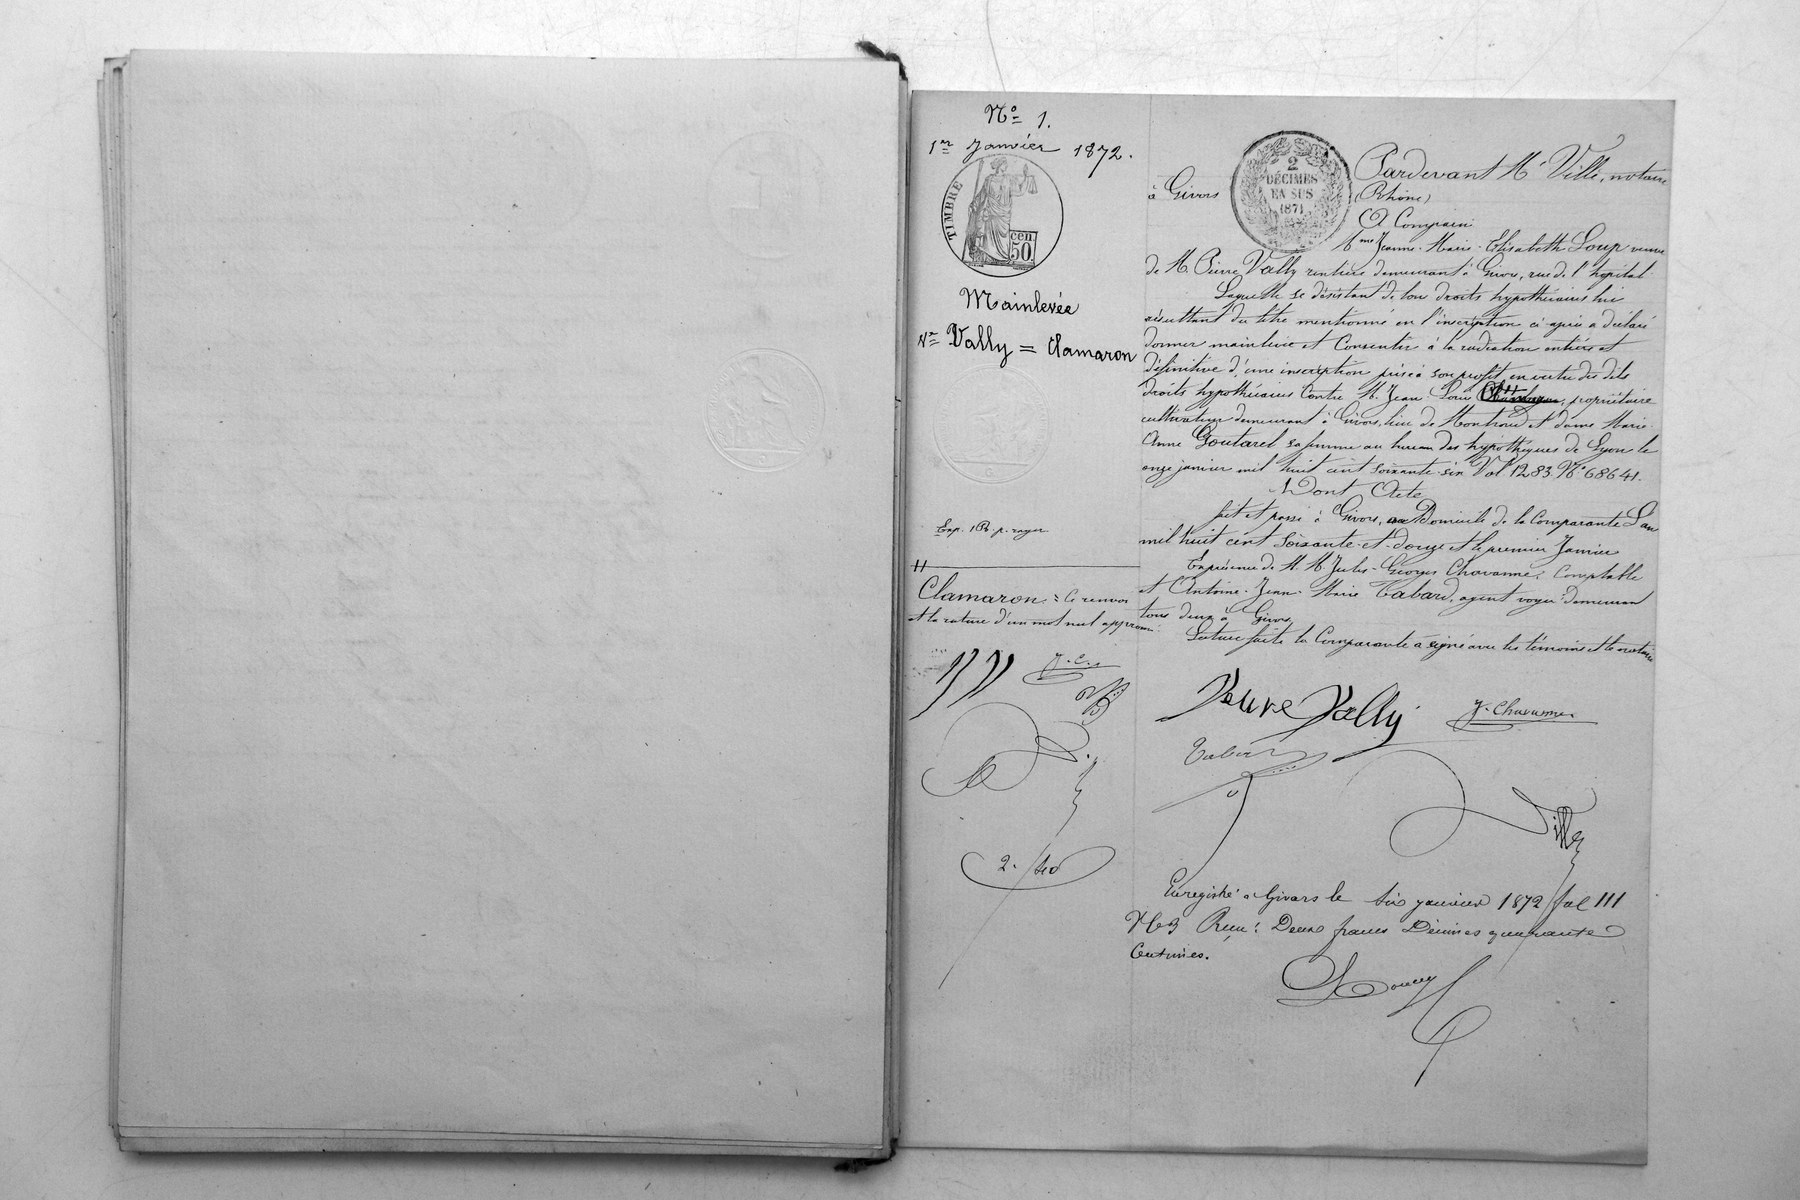 Nº 1.
1er Janvier 1872.
TIMBRE
50 cen.
Mainlevée
Vve Vally = Clamaron
Exp. 1 R. p. royer
Clamaron = Ce renvoi
et la rature d'un mot nul approuvés
J. C.
2 DÉCIMES EN SUS 1871
Pardevant Me Ville, notaire
à Givors (Rhône)
A Comparu
Mme Jeanne-Marie-Elisabeth Loup veuve
de M. Pierre Vally rentière demeurant à Givors, rue de l'hôpital
Laquelle se désistant de tous droits hypothécaires lui
résultant du titre mentionné en l'inscription ci-après a déclaré
donner mainlevée et Consentir à la radiation entière et
définitive d'une inscription prise à son profit, en vertu des dits
droits hypothécaires Contre M. Jean Louis propriétaire
cultivateur demeurant à Givors, lieu de Montrond et dame Marie-
Anne Goutarel sa femme au bureau des hypothèques de Lyon le
onze janvier mil huit cent soixante-six Vol 1283 Nº 68641.
Dont Acte
fait et passé à Givors, au Domicile de la Comparante L'an
mil huit cent Soixante-et-douze et le premier Janvier
En présence de M. M. Jules-Georges Chavanne, Comptable
et Antoine-Jean-Marie Tabard, agent voyer demeurant
tous deux à Givors
Lecture faite la Comparante a signé avec les témoins et le notaire
Veuve Vally
J. Chavanne
Tabard
Ville
Enregistré à Givors le six janvier 1872 fol 111
Reçu: Deux francs Décimes quarante
Centimes.